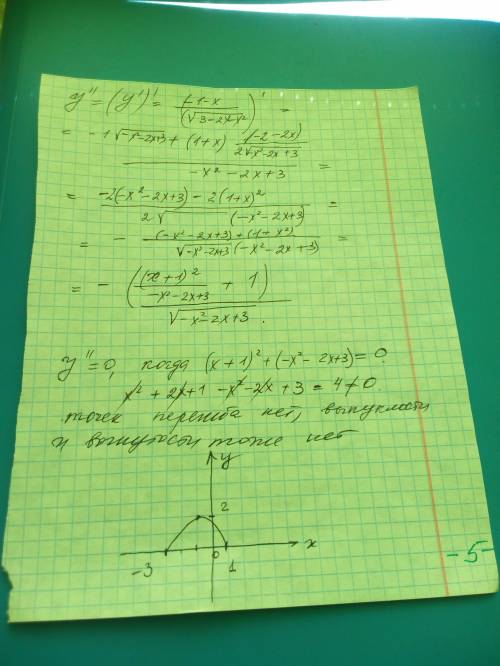 y'' = (y')' = ((-1-x)/(√3-2x-x²))' =
= -1√-x²-2x+3 + (1+x) (-2-2x)/(2√-x²-2x+3) / -x²-2x+3 =
= -2(-x²-2x+3) - 2(1+x)² / 2√ (-x²-2x+3) =
= - (-x²-2x+3) + (1+x²) / √-x²-2x+3 (-x²-2x+3) =
= - ((x+1)²/-x²-2x+3 + 1) / √-x²-2x+3.
y''=0, когда (x+1)²+(-x²-2x+3)=0.
x²+2x+1-x²-2x+3=4≠0.
точек перегиба нет, выпуклости
и вогнутости тоже нет
y
2
x
-3 0 1
-5-